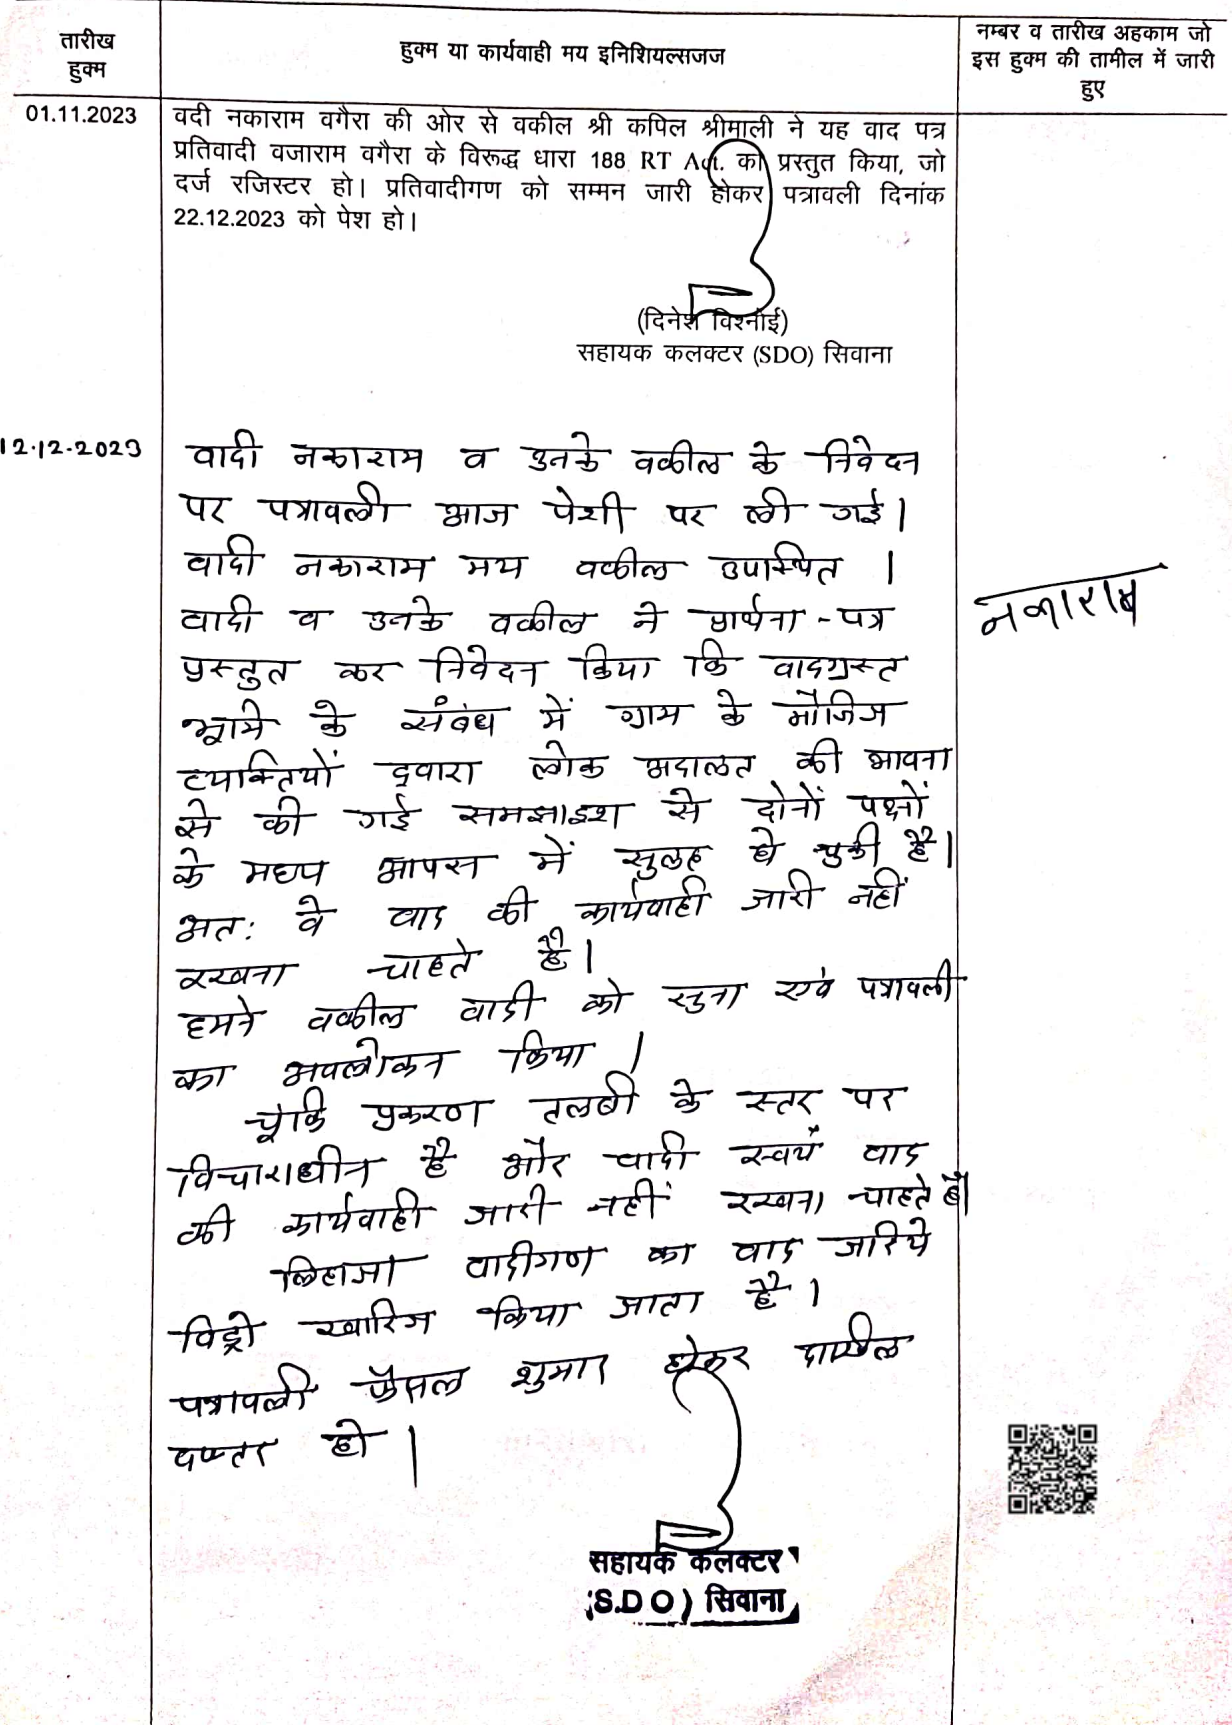 तारीख
हुक्म
हुक्म या कार्यवाही मय इनिशियल्सजज
नम्बर व तारीख अहकाम जो
इस हुक्म की तामील में जारी
हुए
01.11.2023
वदी नकाराम वगैरा की ओर से वकील श्री कपिल श्रीमाली ने यह वाद पत्र
प्रतिवादी वजाराम वगैरा के विरूद्ध धारा 188 RT Act. को प्रस्तुत किया, जो
दर्ज रजिस्टर हो। प्रतिवादीगण को सम्मन जारी होकर पत्रावली दिनांक
22.12.2023 को पेश हो।
(दिनेश विश्नोई)
सहायक कलक्टर (SDO) सिवाना
12.12.2023
वादी नकाराम व उनके वकील के निवेदन
पर पत्रावली आज पेशी पर ली गई।
वादी नकाराम मय वकील उपस्थित ।
वादी व उनके वकील ने प्रार्थना-पत्र
नकाराम
प्रस्तुत कर निवेदन किया कि वादग्रस्त
भूमि के संबंध में ग्राम के मौजिज
व्यक्तियों द्वारा लोक अदालत की भावना
से की गई समझाइश से दोनों पक्षों
के मध्य आपस में सुलह हो चुकी है।
अत: वे वाद की कार्यवाही जारी नहीं
रखना चाहते है।
हमने वकील वादी को सुना एवं पत्रावली
का अवलोकन किया।
चूंकि प्रकरण तलबी के स्तर पर
विचाराधीन है और वादी स्वयं वाद
की कार्यवाही जारी नहीं रखना चाहते है।
लिहाजा वादीगण का वाद जरिये
विड्रो खारिज किया जाता है।
पत्रावली फैसल शुमार होकर दाखिल
दफ्तर हो।
सहायक कलक्टर
(S.D O) सिवाना